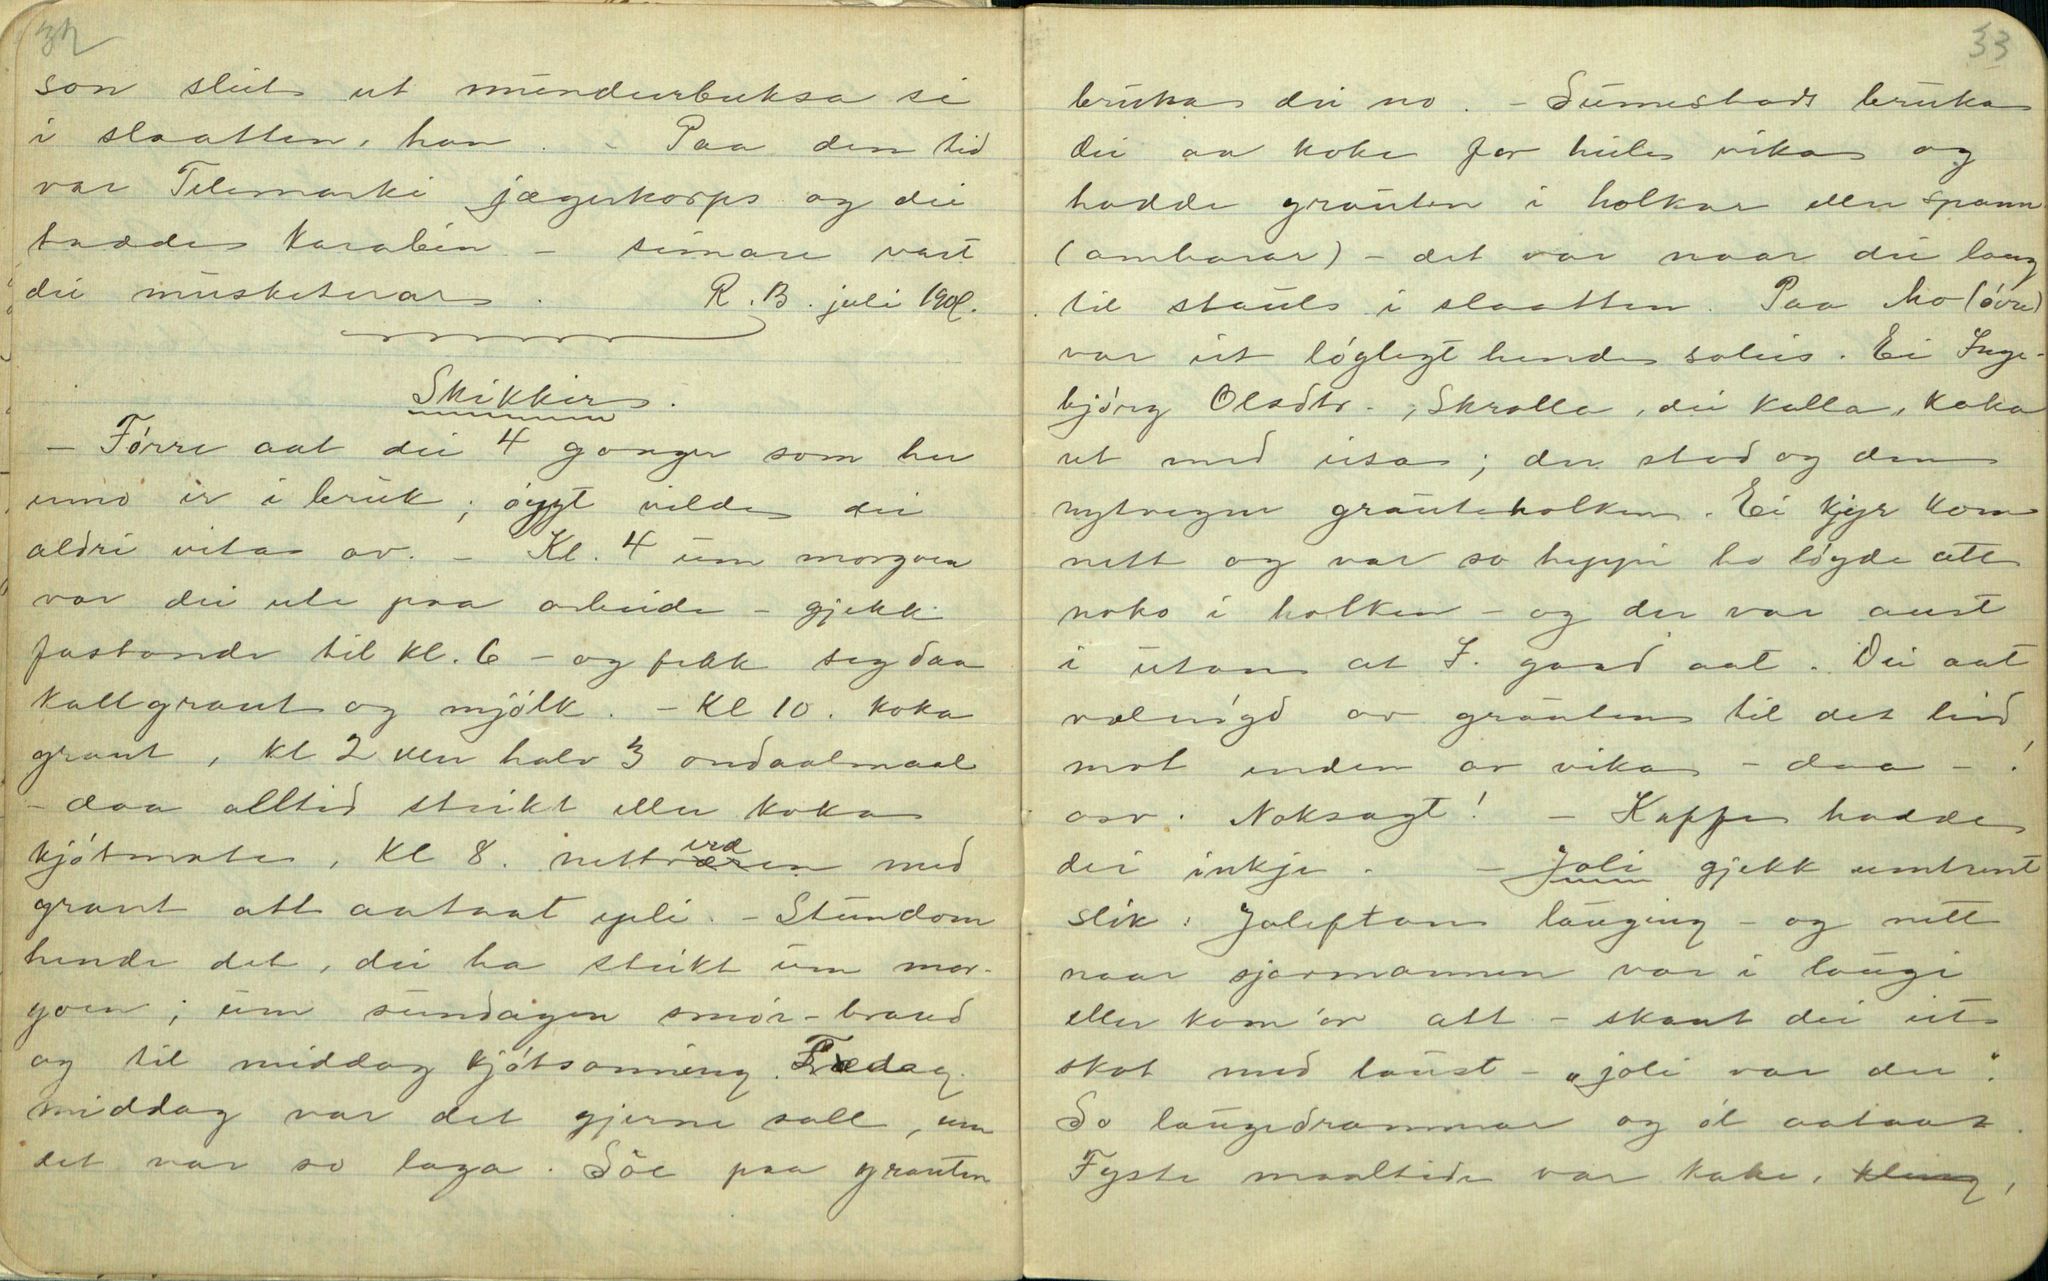 32
son sleit ut munderbuksa si
i slaatten, han. - Paa den tid
var Telemarki jægerkorps og dei
hadde karabin - seinare vart
dei musketerar. R. B. juli 1908.
Skikkir.
- Fórre aat dei 4 gonger som her
enno er i bruk; óygt vilde dei
aldri vita av. - Kl. 4 um morgoen
var dei ute paa arbeide - gjekk
fastande til kl. 6 - og fekk seg daa
kallgraut og mjólk. - Kl 10. koka
graut, kl 2 elle halv 3 ondaalmaal
- daa alltid steikt eller koka
kjótmate, kl 8. nettverden med
graut att aataat ypli. - Stundom
hende det, dei ha steikt um mor-
goen; um sundagen smór-braud
og til middag kjótsanning. Fredag
middag var det gjerne soll, um
det var so laga. Sóe paa grauten
33
bruka dei no. - Sumestads bruka
dei aa koke for heile vika og
hadde grauten i holkar eller spann
(ambarar) - det var naar dei laag
til stauls i slaatten. Paa Mo (óvre)
var eit lóglegt hende soleis. Ei Inge-
bjórg Olsdtr., Skralla, dei kalla, koka
ut med eisa; der stod og den
nytvegne grauteholken. Ei kjyr kom
nett og var so heppi ho lógde att
noko i holken - og der var aust
i utan at I. gaad aat. Dei aat
velnógd av grauten til det leid
mot enden av vika - daa - !
osv. Noksagt! - Kaffe hadde
dei inkje. - Joli gjekk umtrent
slik: Joleftan lauging - og nett
naar sjermannen var i laugi
eller kom 'or att - skaut dei eit
skot med laust - „joli var der".
So laugedrammar og ól aataat.
Fyste maaltide var kake, kling,